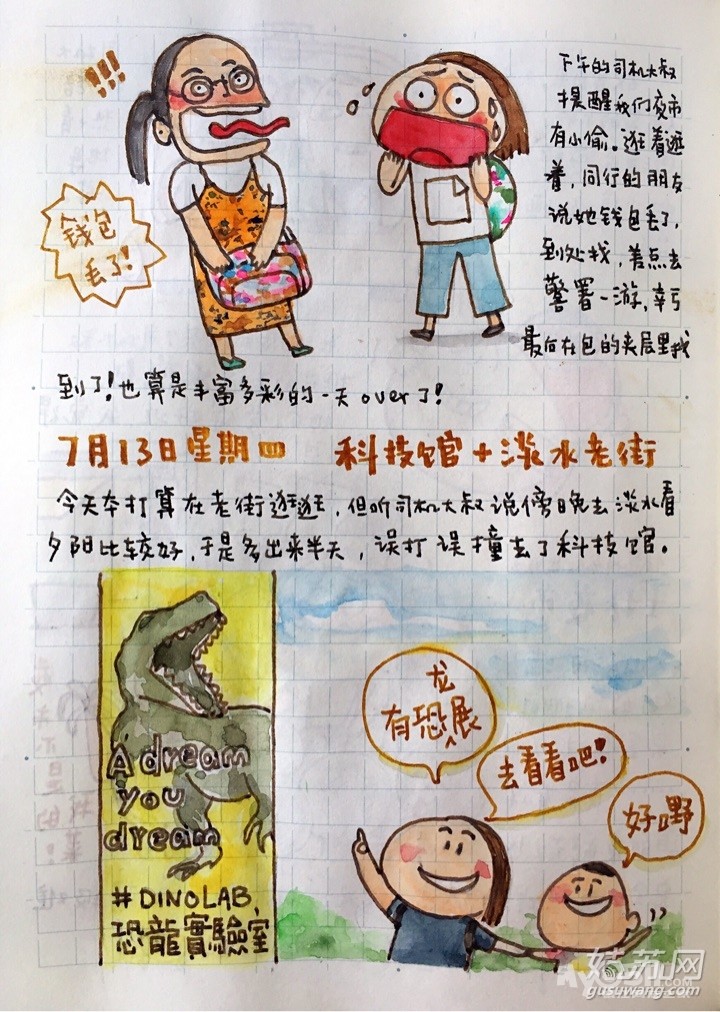 !!!
钱包
丢了!
下午的司机大叔
提醒我们夜市
有小偷。逛着逛
着,同行的朋友
说她钱包丢了,
到处找,差点去
警署一游,幸亏
最后在包的夹层里找
到了!也算是丰富多彩的一天over了!
7月13日星期四 科技馆+淡水老街
今天本打算在老街逛逛,但听司机大叔说傍晚去淡水看
夕阳比较好,于是多出来半天,误打误撞去了科技馆。
A dream
you
dream
#DINOLAB,
恐龍實驗室
有恐龙展
去看看吧!
好嘢
姑苏网
gusuwang.com